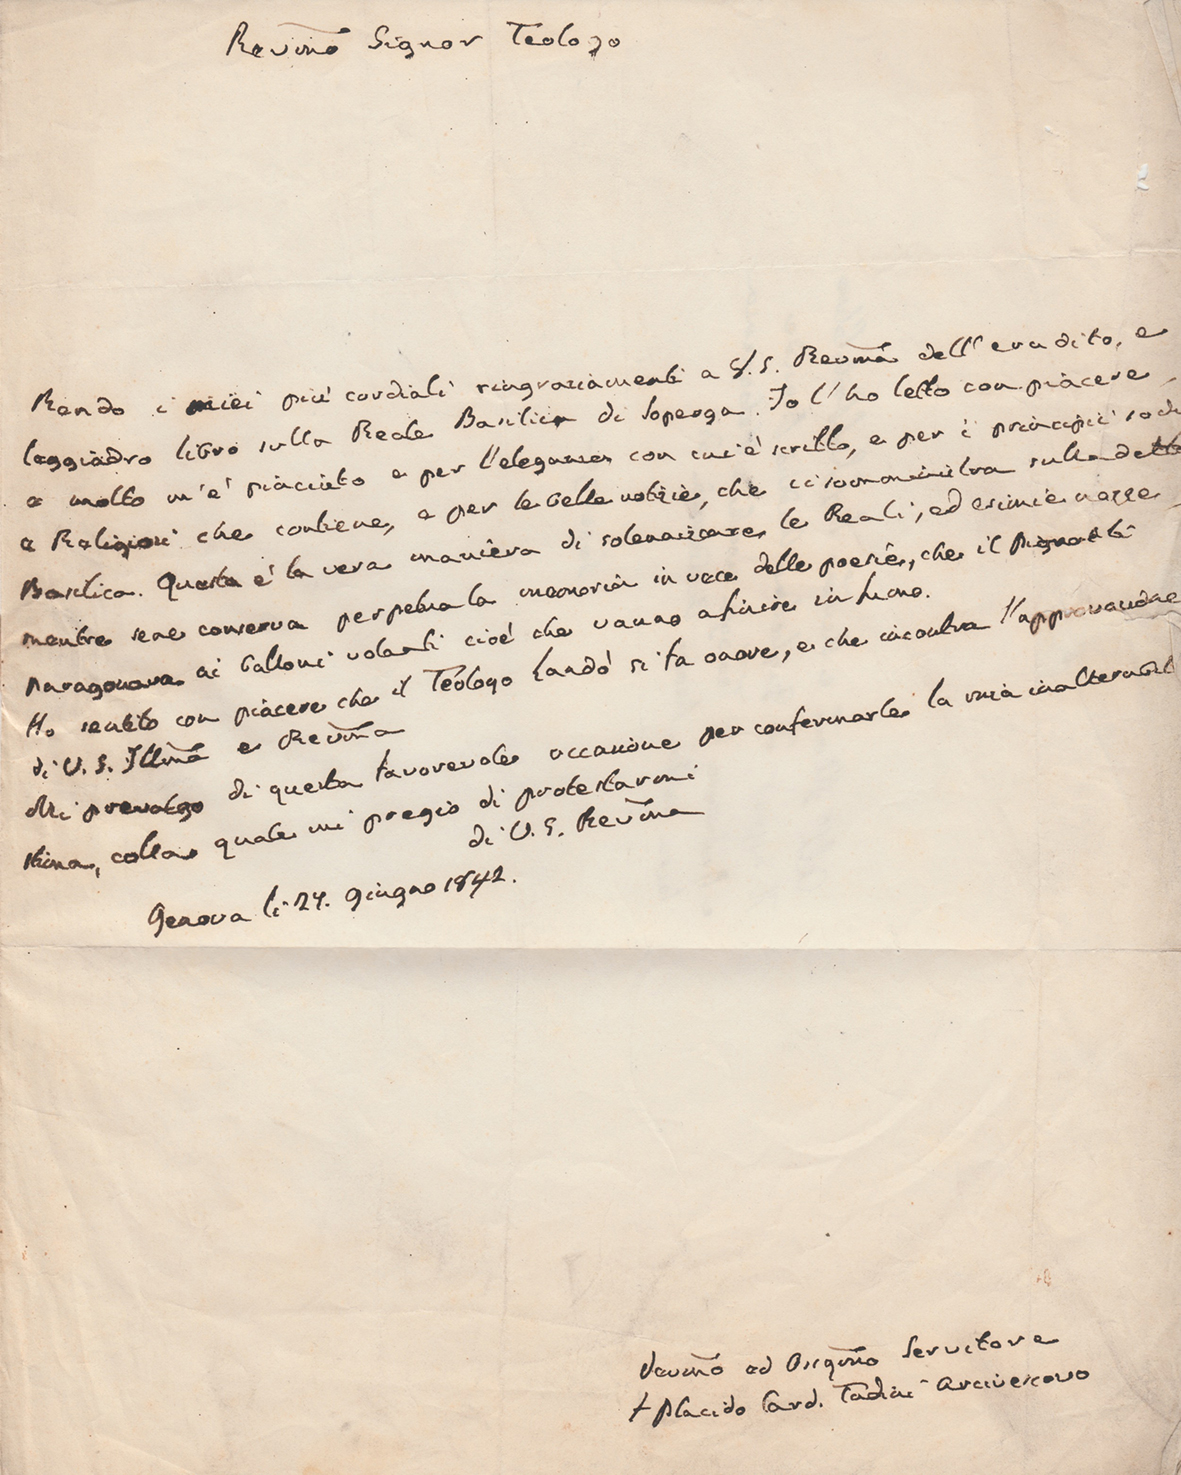 Revmo Signor Teologo
Rendo i miei più cordiali ringraziamenti a V. S. Revma dell'erudito, e
leggiadro libro sulla Reale Basilica di Soperga. Io l'ho letto con piacere,
e molto m'è piaciuto e per l'eleganza con cui è scritto, e per i principii sodi
e Religiosi che contiene, e per le belle notizie, che ci somministra sulla detta
Basilica. Questa è la vera maniera di solennizzare le Reali, ed esimie nozze
mentre sene conserva perpetua la memoria in vece delle poesie, che il
paragonava ai balloni volanti cioè che vanno a finire in fumo.
Ho sentito con piacere che il Teologo si fa onore, e che incontra l'approvazione
di V. S. Illma e Revma
Mi prevalgo di questa favorevole occasione per confermarle la mia inalterabil
stima, colla quale mi pregio di protestarmi
di V. S. Revma
Genova li 24. Giugno 1842.
Devmo ed Osqmo Servitore
+ Placido Card. Tadini Arcivescovo